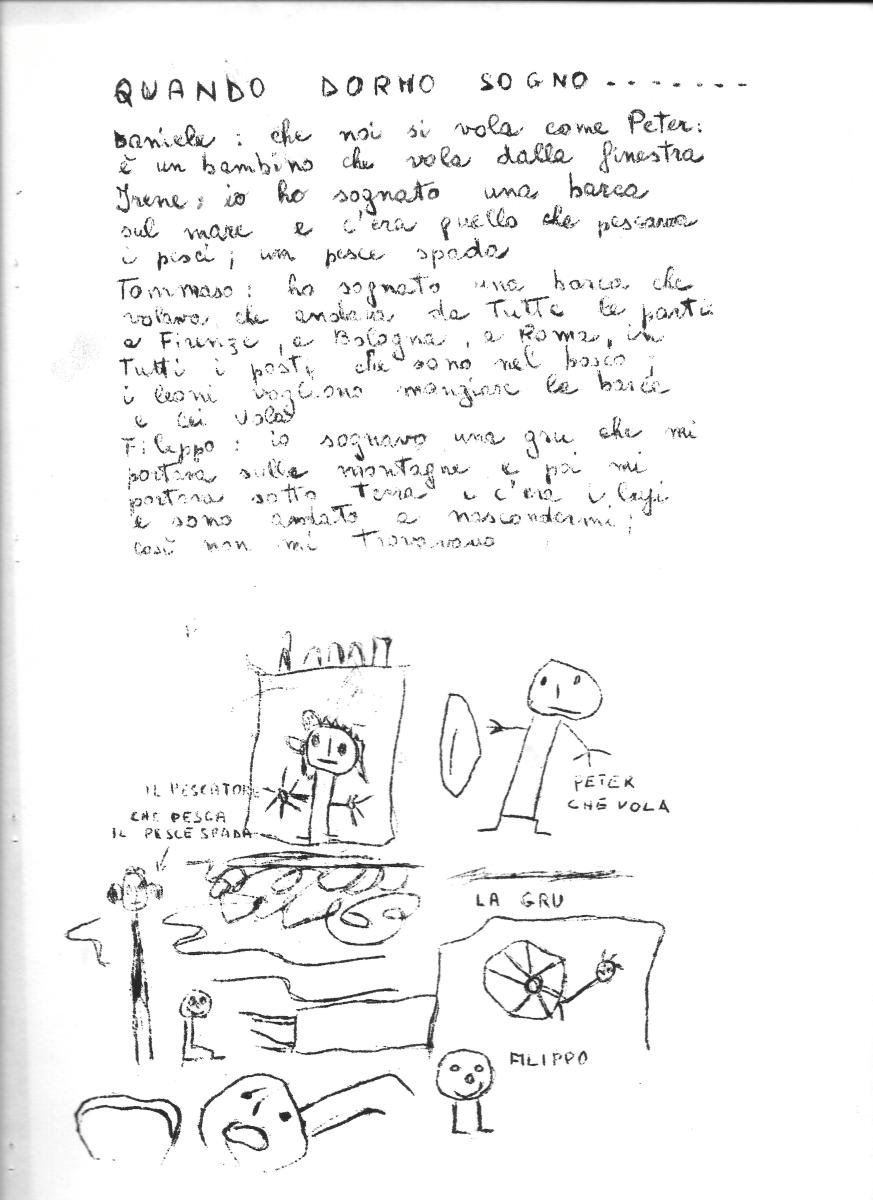 QUANDO DORMO SOGNO........
Daniele: che noi si vola come Peter:
è un bambino che vola dalla finestra
Irene: io ho sognato una barca
sul mare e c'era quello che pescava
i pesci; un pesce spada
Tommaso: ho sognato una barca che
volava che andava da Tutte le parti
a Firenze, a Bologna, a Roma, in
Tutti i posti che sono nel bosco;
i leoni vogliono mangiare la barca
e lei vola
Filippo: io sognavo una gru che mi
portava sulle montagne e poi mi
portava sotto Terra e c'era i lupi
e sono andato a nascondermi;
così non mi Trovavano
IL PESCATORE
CHE PESCA
IL PESCE SPADA
PETER
CHE VOLA
LA GRU
FILIPPO